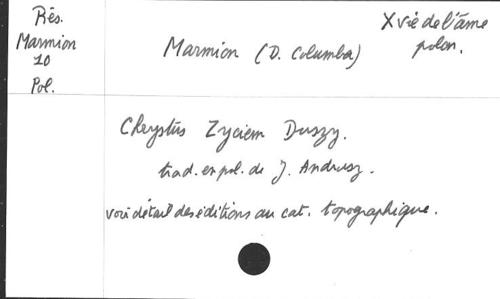 Rés.
Marmion
10
Pol.
Marmion (D. Columba)
X vie de l'âme
polon.
Chrystus Zyciem Duszy.
trad. en pol. de J. Andrusz.
voir détail des éditions au cat. topographique.